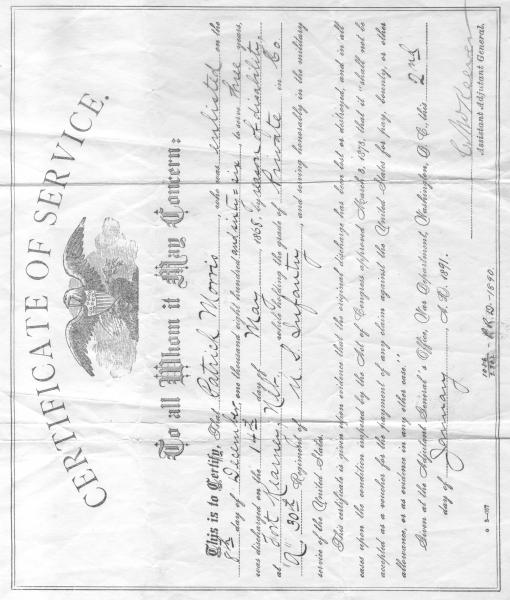 CERTIFICATE OF SERVICE.
To all Whom it May Concern:
This is to Certify, That Patrick Morris, who was enlisted on the
8th day of December, one thousand eight hundred and sixty-six, to serve three years,
was discharged on the 14th day of May, 1868, by reason of disability,
at Fort Kearney, Neb., while holding the grade of Private in Co
"K" 30th Regiment of U S Infantry, and serving honorably in the military
service of the United States.
This certificate is given upon evidence that the original discharge has been lost or destroyed, and in all
cases upon the condition imposed by the Act of Congress approved March 3, 1873, that it "shall not be
accepted as a voucher for the payment of any claim against the United States for pay, bounty, or other
allowance, or as evidence in any other case."
Given at the Adjutant General's Office, War Department, Washington, D. C., this 2nd
day of January, A. D. 1891.
Assistant Adjutant General.